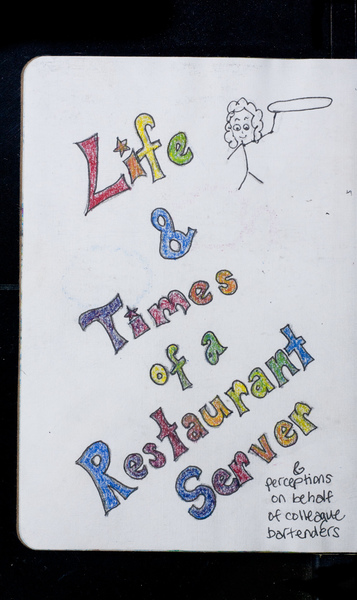 Life
&
Times
of a
Restaurant
Server
&
perceptions
on behalf
of colleague
bartenders